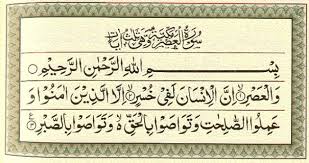 سُوْرَةُ الْعَصْرِ مَكِّيَّةٌ وَّهِيَ ثَلٰثُ اٰيَاتٍ
بِسْمِ اللهِ الرَّحْمٰنِ الرَّحِيْمِ ۝
وَالْعَصْرِ ۝١ اِنَّ الْاِنْسَانَ لَفِيْ خُسْرٍ ۝٢ اِلَّا الَّذِيْنَ اٰمَنُوْا وَ
عَمِلُوا الصّٰلِحٰتِ وَتَوَاصَوْا بِالْحَقِّ ەۙ وَتَوَاصَوْا بِالصَّبْرِ ۝٣